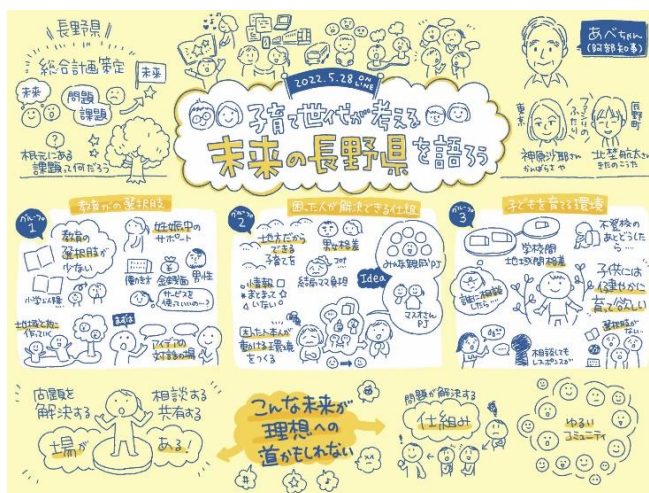 長野県
総合計画策定
未来
未来
問題
課題
?
根元にある
課題って何だろう
2022.5.28 ON LINE
子育て世代が考える
未来の長野県を語ろう
あべちゃん
(阿部知事)
東京
ファシリの
ふたり
辰野町
神原沙耶さん
かんばらさや
北埜航太さん
きたのこうた
教育がの選択肢
グループ
1
教育の
選択肢が
少ない
小学以降…
妊娠中の
サポート
働き方
金銭面
男性
サービスを
使っていいの~?
地域と共に
作っていく
まずは
アイデアの
対話の場
困った人が解決できる仕組
グループ
2
地方だから
できる
子育てを
男女格差
コロナ
結局ママ負担
情報
まとまって
いない
Idea
みんな親戚PJ
マスオさん
PJ
困った本人が
動ける環境
をつくる
子どもを育てる環境
グループ
3
学校間
地域間格差
不登校の
あとどうし
たら…
誰に相談
したら…
子供には
健やかに
育って欲しい
選択肢が
ない…
相談しても
レスポンスが
問題を
解決する
相談する
共有する
場が
ある!
こんな未来が
理想への
道かもしれない
問題が解決する
仕組み
ゆるい
コミュニティ